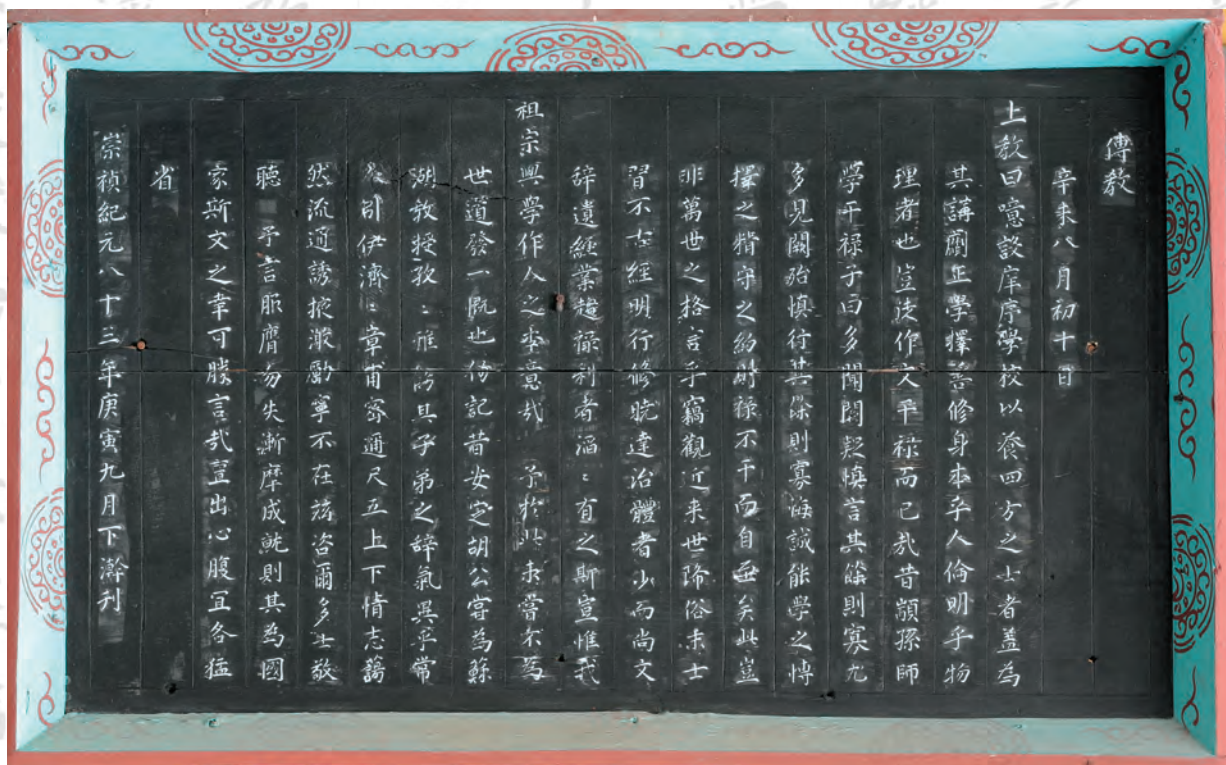 傳教
辛未八月初十日
上教曰噫設庠序學校以養四方之士者盖為
其講劘正學擇善修身本乎人倫明乎物
理者也豈徒作文干祿而已哉昔顓孫師
學干祿子曰多聞闕疑愼言其餘則寡尤
多見闕殆愼行其餘則寡悔誠能學之博
擇之精守之約則祿不干而自至矣此豈
非萬世之格言乎竊觀近来世降俗末士
習不古經明行修曉達治體者少而尚文
辞遺經業趍祿利者滔〻有之斯豈惟我
祖宗興學作人之本意哉 予於此未嘗不為
世道發一慨也仍記昔安定胡公嘗為蘇
湖敎授孜〻雅飭其子弟之辞氣異乎常
人 伊濟〻章甫密通尺五上下情志藹
然流通誘掖激勵寧不在玆咨爾多士敬
聽 予言服膺勿失漸摩成就則其為國
家斯文之幸可勝言哉言出心腹冝各猛
省
崇禎紀元八十三年庚寅九月下澣刊